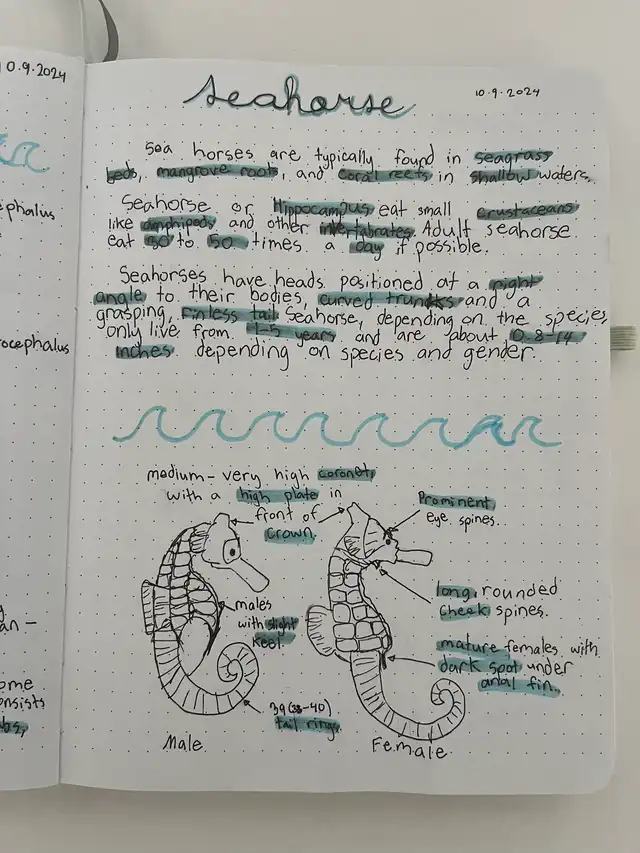 10.9.2024
ephalus
rocephalus
an –
ome
onsists
bs,
Seahorse
10.9.2024
Sea horses are typically found in seagrass
beds, mangrove roots, and coral reefs in shallow waters.
Seahorse or Hippocampus eat small crustaceans
like amphipods and other invertabrates. Adult seahorse
eat 30 to 50 times a day if possible.
Seahorses have heads positioned at a right
angle to their bodies, curved trunks and a
grasping, finless tail. Seahorse, depending on the species,
only live from 1-5 years and are about 0.8-14
inches depending on species and gender.
medium - very high coronet,
with a high plate in
front of
crown.
Prominent
eye spines.
males
with slight
keel
long, rounded
cheek spines.
mature females with
dark spot under
anal fin.
39 (38-40)
tail rings
Male
Female